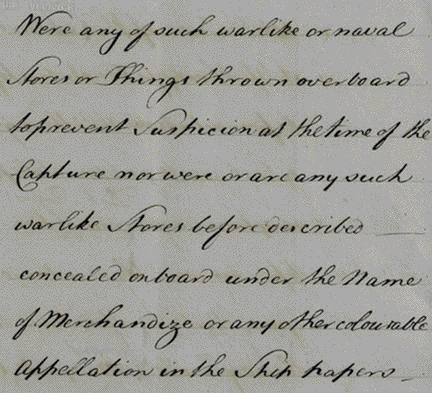 Were any of such warlike or naval
Stores or Things thrown overboard
to prevent Suspicion at the time of the
Capture nor were or are any such
warlike Stores before described
concealed on board under the Name
of Merchandize or any other colourable
Appellation in the Ship papers